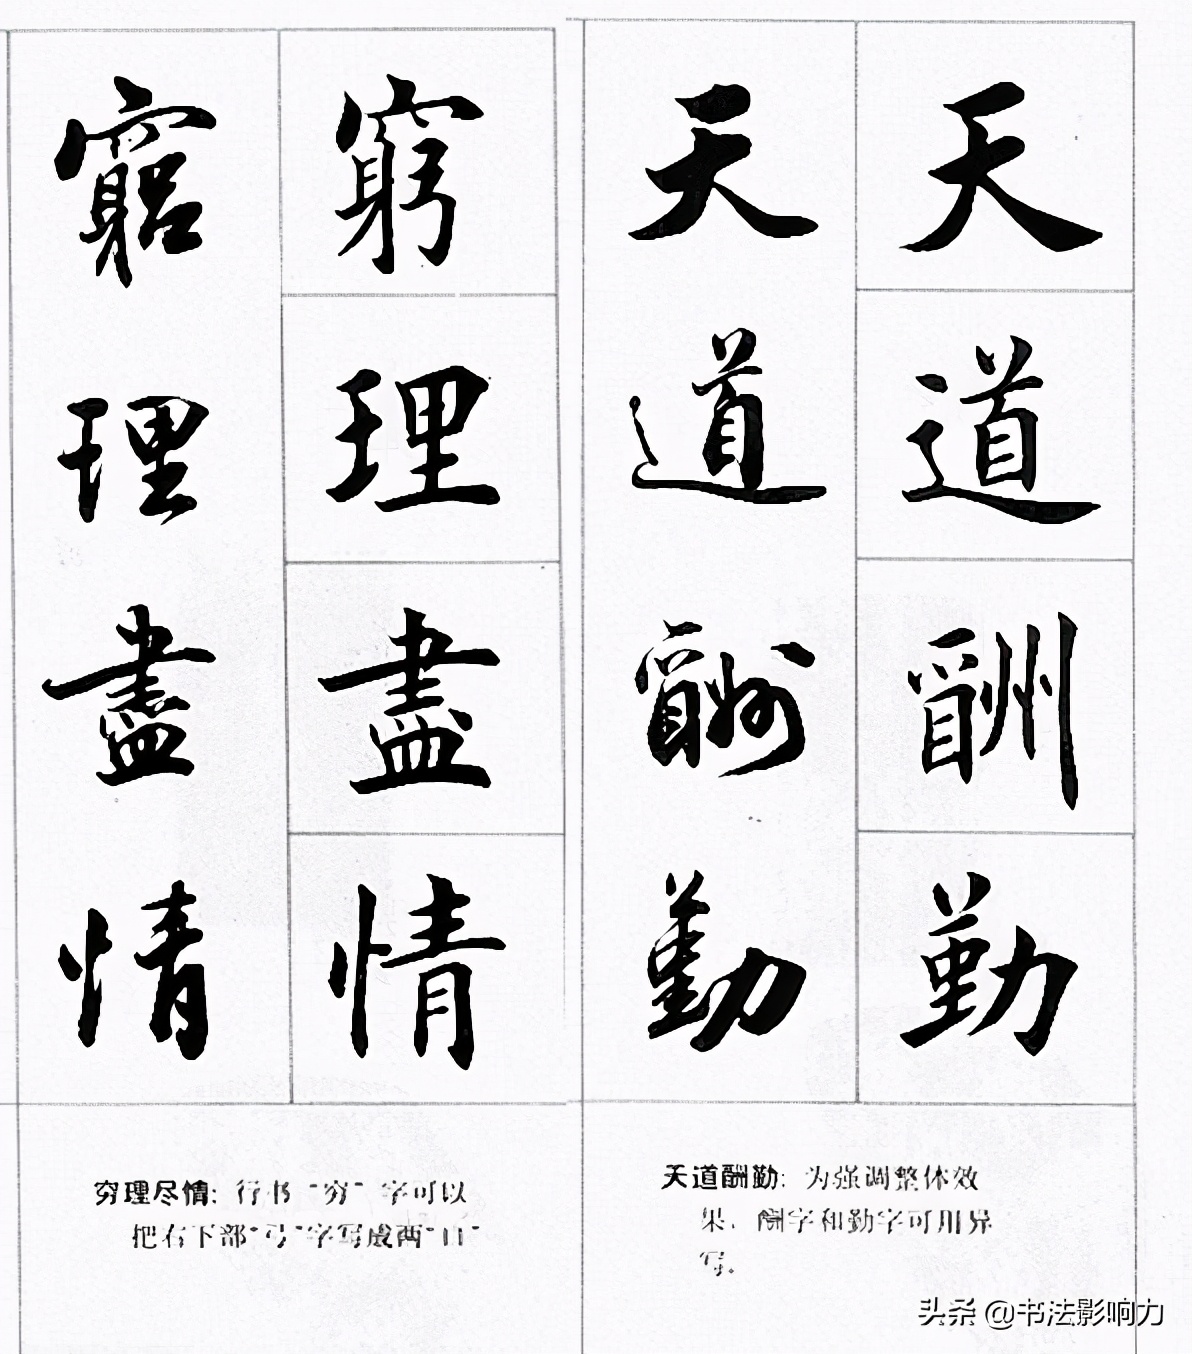 天道酬勤
天道酬勤
窮理盡情
窮理盡情
天道酬勤：为强调整体效
果，酬字和勤字可用异
写。
穷理尽情：行书“穷”字可以
把右下部“弓”字写成两“口”
头条 @书法影响力